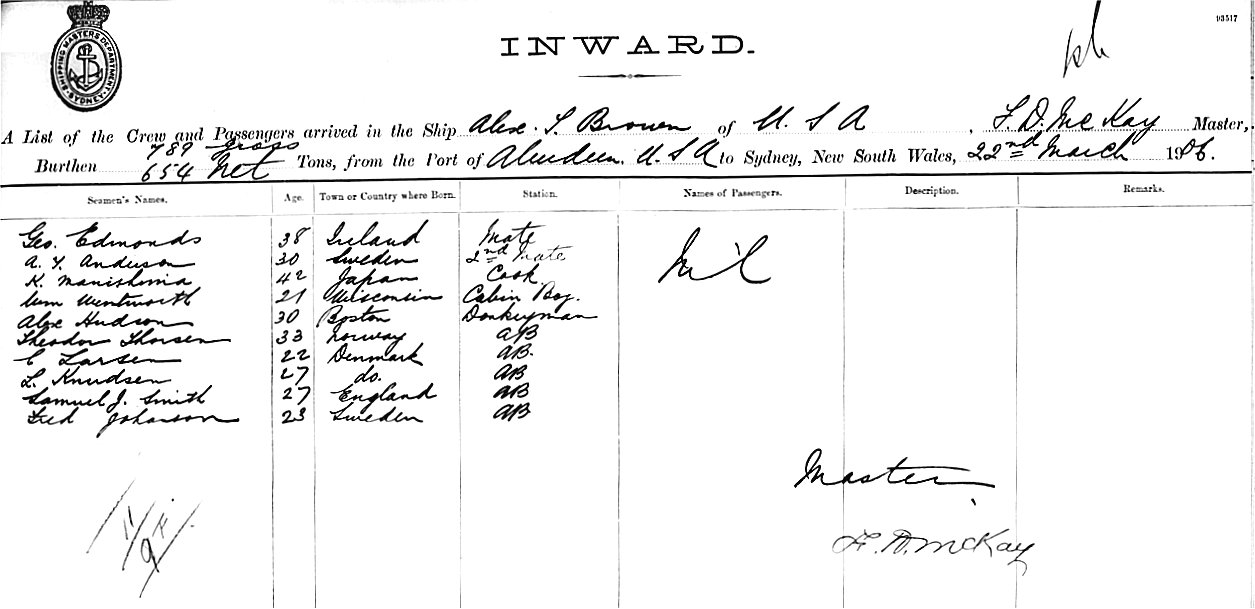 93517
SHIPPING MASTERS DEPARTMENT SYDNEY
INWARD.
A List of the Crew and Passengers arrived in the Ship Alex. T. Brown of U. S A, F. D. McKay Master,
789 gross
Burthen 654 Net Tons, from the Port of Aberdeen. U. S A to Sydney, New South Wales, 22nd March 1906.
Seamen's Names. Age. Town or Country where Born. Station. Names of Passengers. Description. Remarks.
Geo. Edmonds 38 Ireland Mate
A. Y. Anderson 30 Sweden 2nd Mate
K. Manishima 42 Japan Cook
Wm Wentworth 21 Wisconsin Cabin Boy.
Alex Hudson 30 Boston Donkeyman
Theodor Thorsen 33 Norway AB
C Larsen 22 Denmark AB.
L. Knudsen 27 do. AB
Samuel J. Smith 27 England AB
Fred Johanson 23 Sweden AB
Nil
Master
F. D. McKay